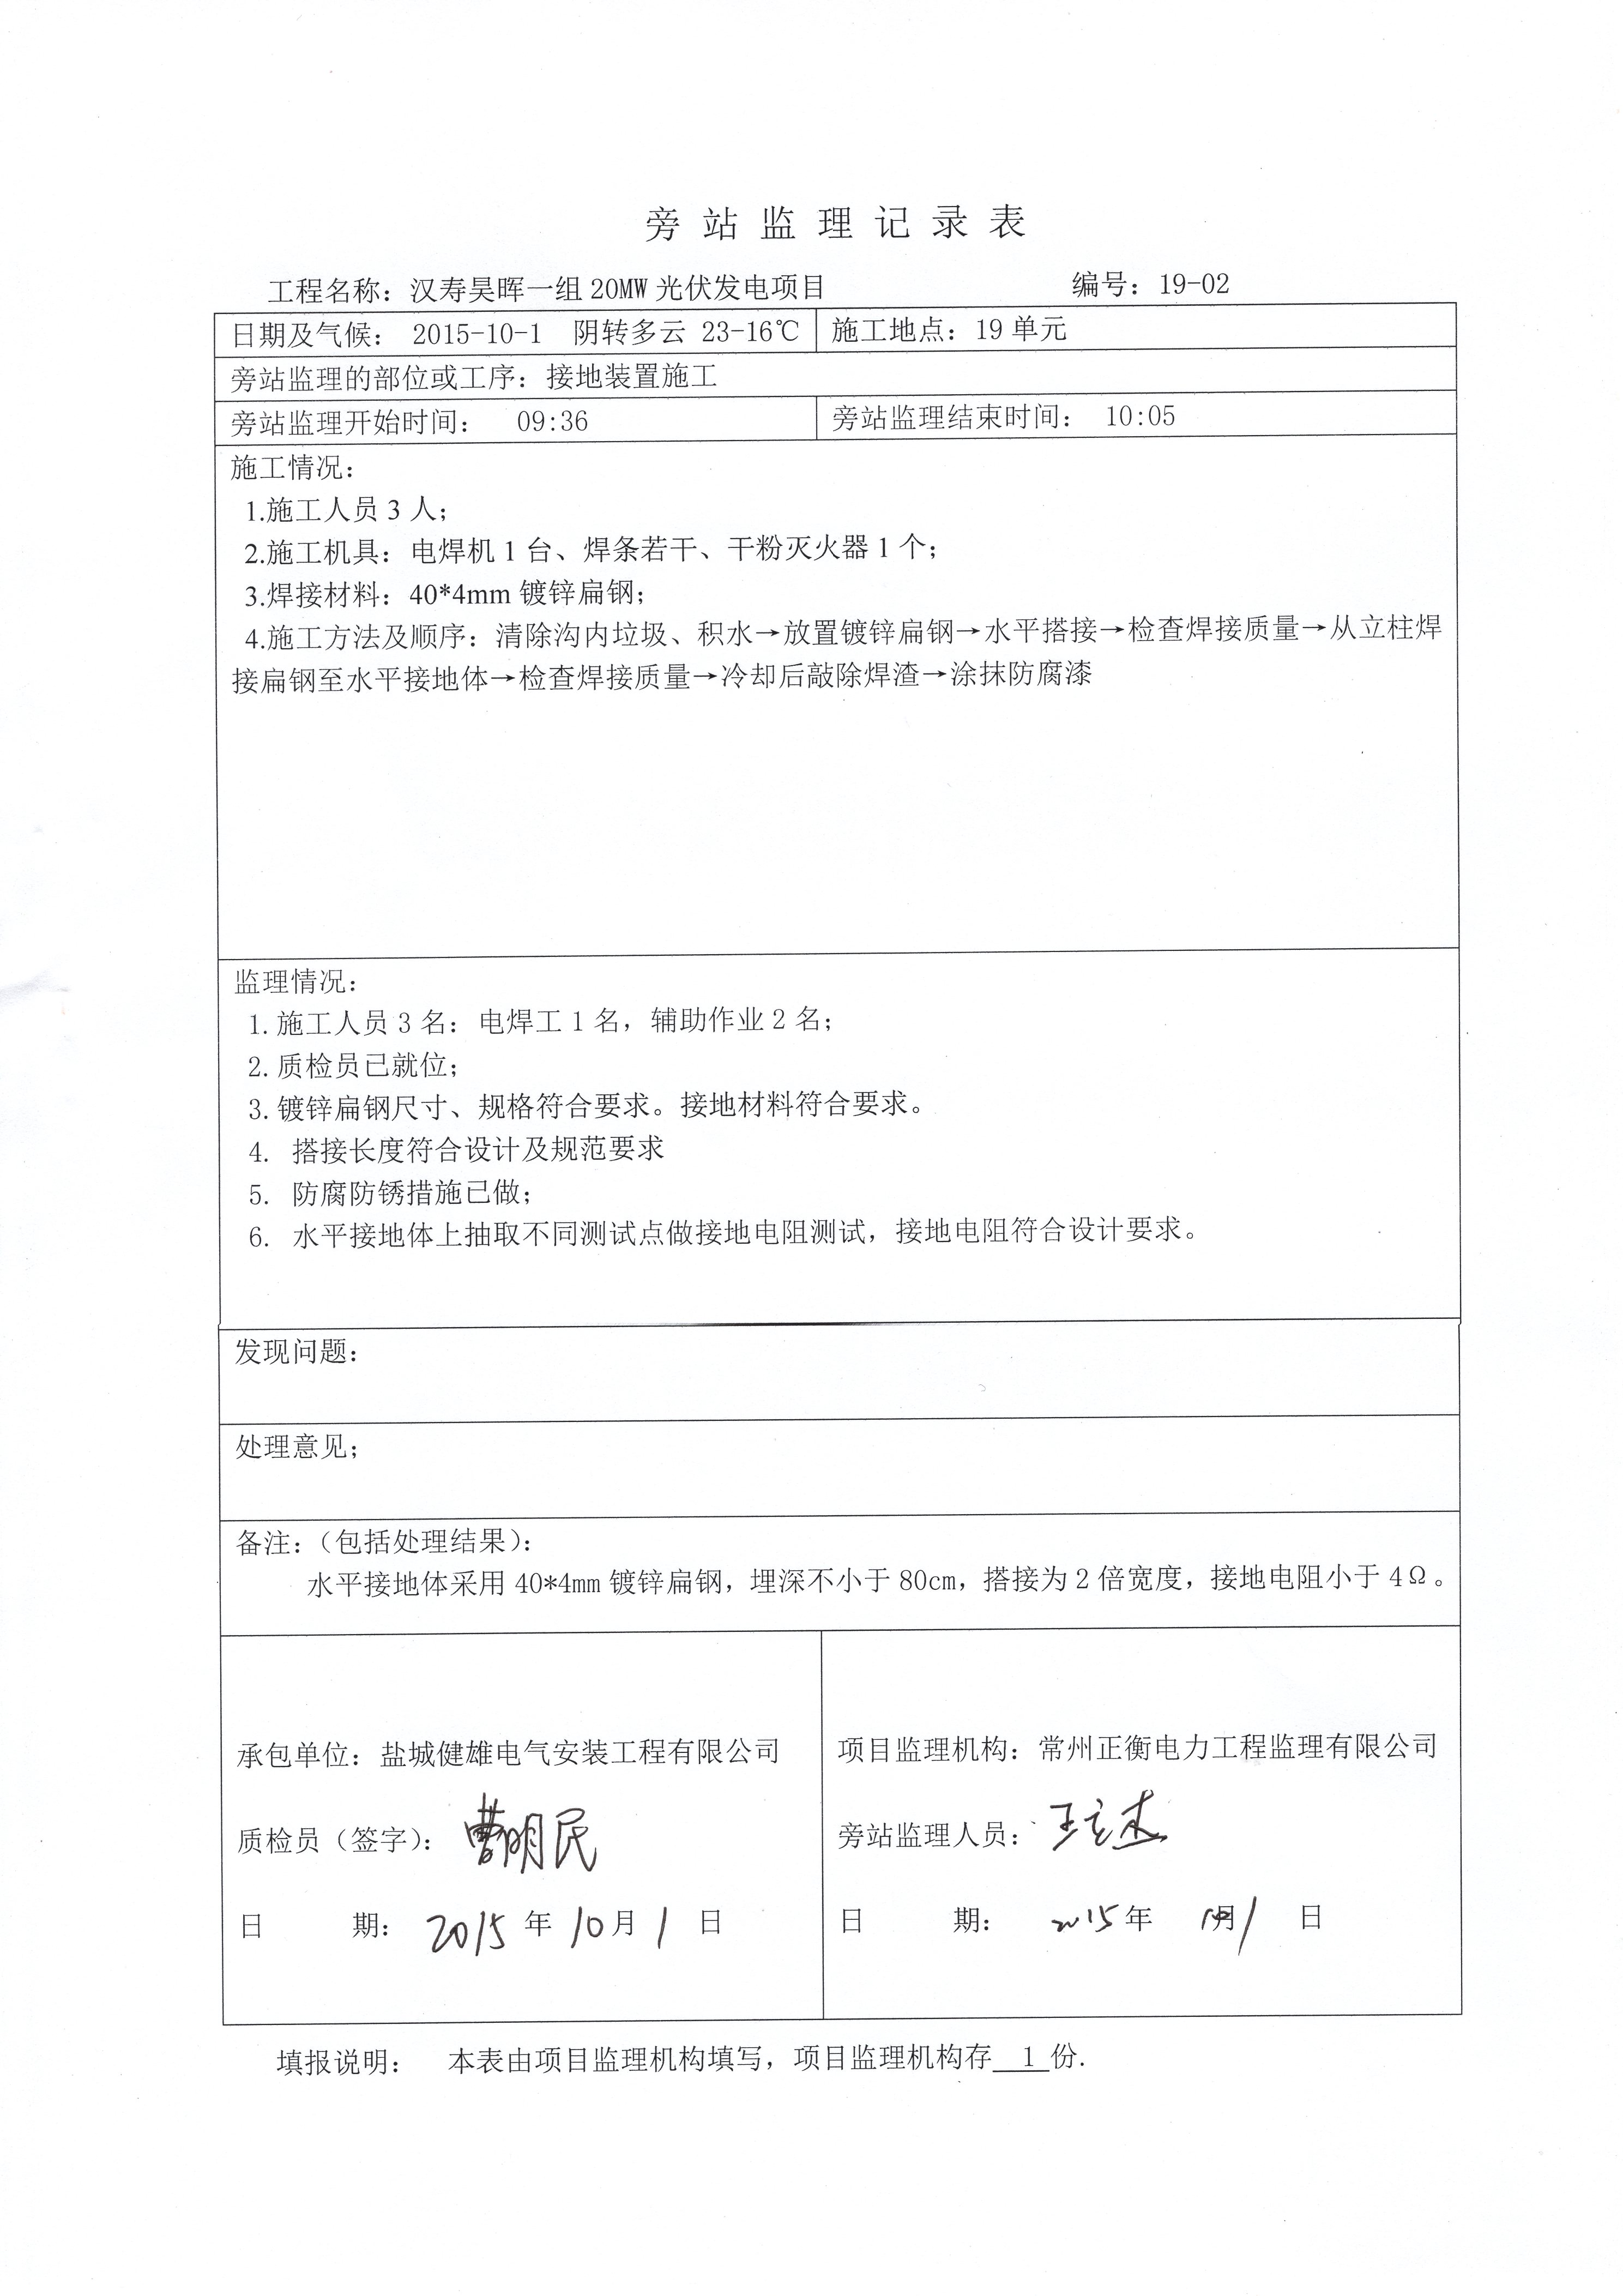 旁站监理记录表
工程名称：汉寿昊晖一组 20MW 光伏发电项目 编号：19-02
日期及气候： 2015-10-1 阴转多云 23-16℃ 施工地点：19 单元
旁站监理的部位或工序：接地装置施工
旁站监理开始时间： 09:36 旁站监理结束时间： 10:05
施工情况：
1.施工人员 3 人；
2.施工机具：电焊机 1 台、焊条若干、干粉灭火器 1 个；
3.焊接材料：40*4mm 镀锌扁钢；
4.施工方法及顺序：清除沟内垃圾、积水→放置镀锌扁钢→水平搭接→检查焊接质量→从立柱焊
接扁钢至水平接地体→检查焊接质量→冷却后敲除焊渣→涂抹防腐漆
监理情况：
1. 施工人员 3 名：电焊工 1 名，辅助作业 2 名；
2. 质检员已就位；
3. 镀锌扁钢尺寸、规格符合要求。接地材料符合要求。
4. 搭接长度符合设计及规范要求
5. 防腐防锈措施已做；
6. 水平接地体上抽取不同测试点做接地电阻测试，接地电阻符合设计要求。
发现问题：
处理意见；
备注：（包括处理结果）：
水平接地体采用 40*4mm 镀锌扁钢，埋深不小于 80cm，搭接为 2 倍宽度，接地电阻小于 4Ω。
承包单位：盐城健雄电气安装工程有限公司 项目监理机构：常州正衡电力工程监理有限公司
质检员（签字）：曹明民 旁站监理人员：王杰
日 期： 2015 年 10 月 1 日 日 期： 2015 年 10月 1 日
填报说明： 本表由项目监理机构填写，项目监理机构存 1 份.